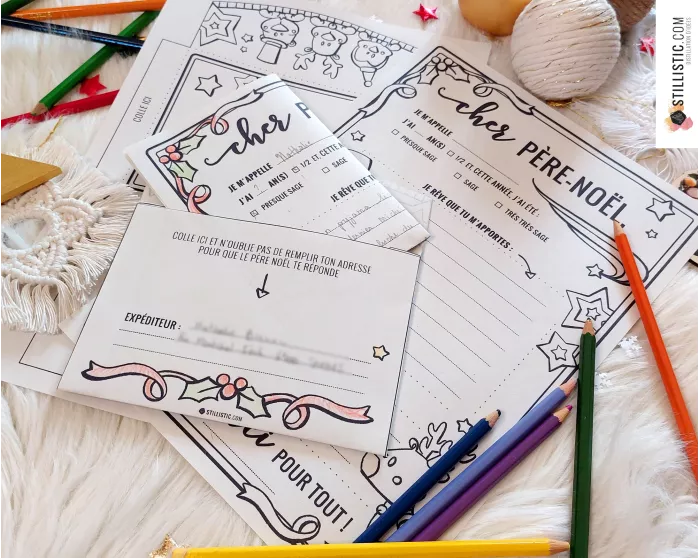 STILLISTIC.COM
DISTILLATION D'IDÉES
COLLE ICI
cher PÈRE-NOËL
JE M'APPELLE
J'AI ANS ☐ 1/2 ET, CETTE ANNÉE, J'AI ÉTÉ :
☐ PRESQUE SAGE ☐ SAGE ☐ TRÈS TRÈS SAGE
JE RÊVE QUE TU M'APPORTES :
cher P
JE M'APPELLE
J'AI AN(S) 1/2 ET, CETTE A
PRESQUE SAGE ☐ SAGE
JE RÊVE QUE TU
COLLE ICI ET N'OUBLIE PAS DE REMPLIR TON ADRESSE
POUR QUE LE PÈRE NOËL TE RÉPONDE
EXPÉDITEUR :
STILLISTIC.COM
POUR TOUT !